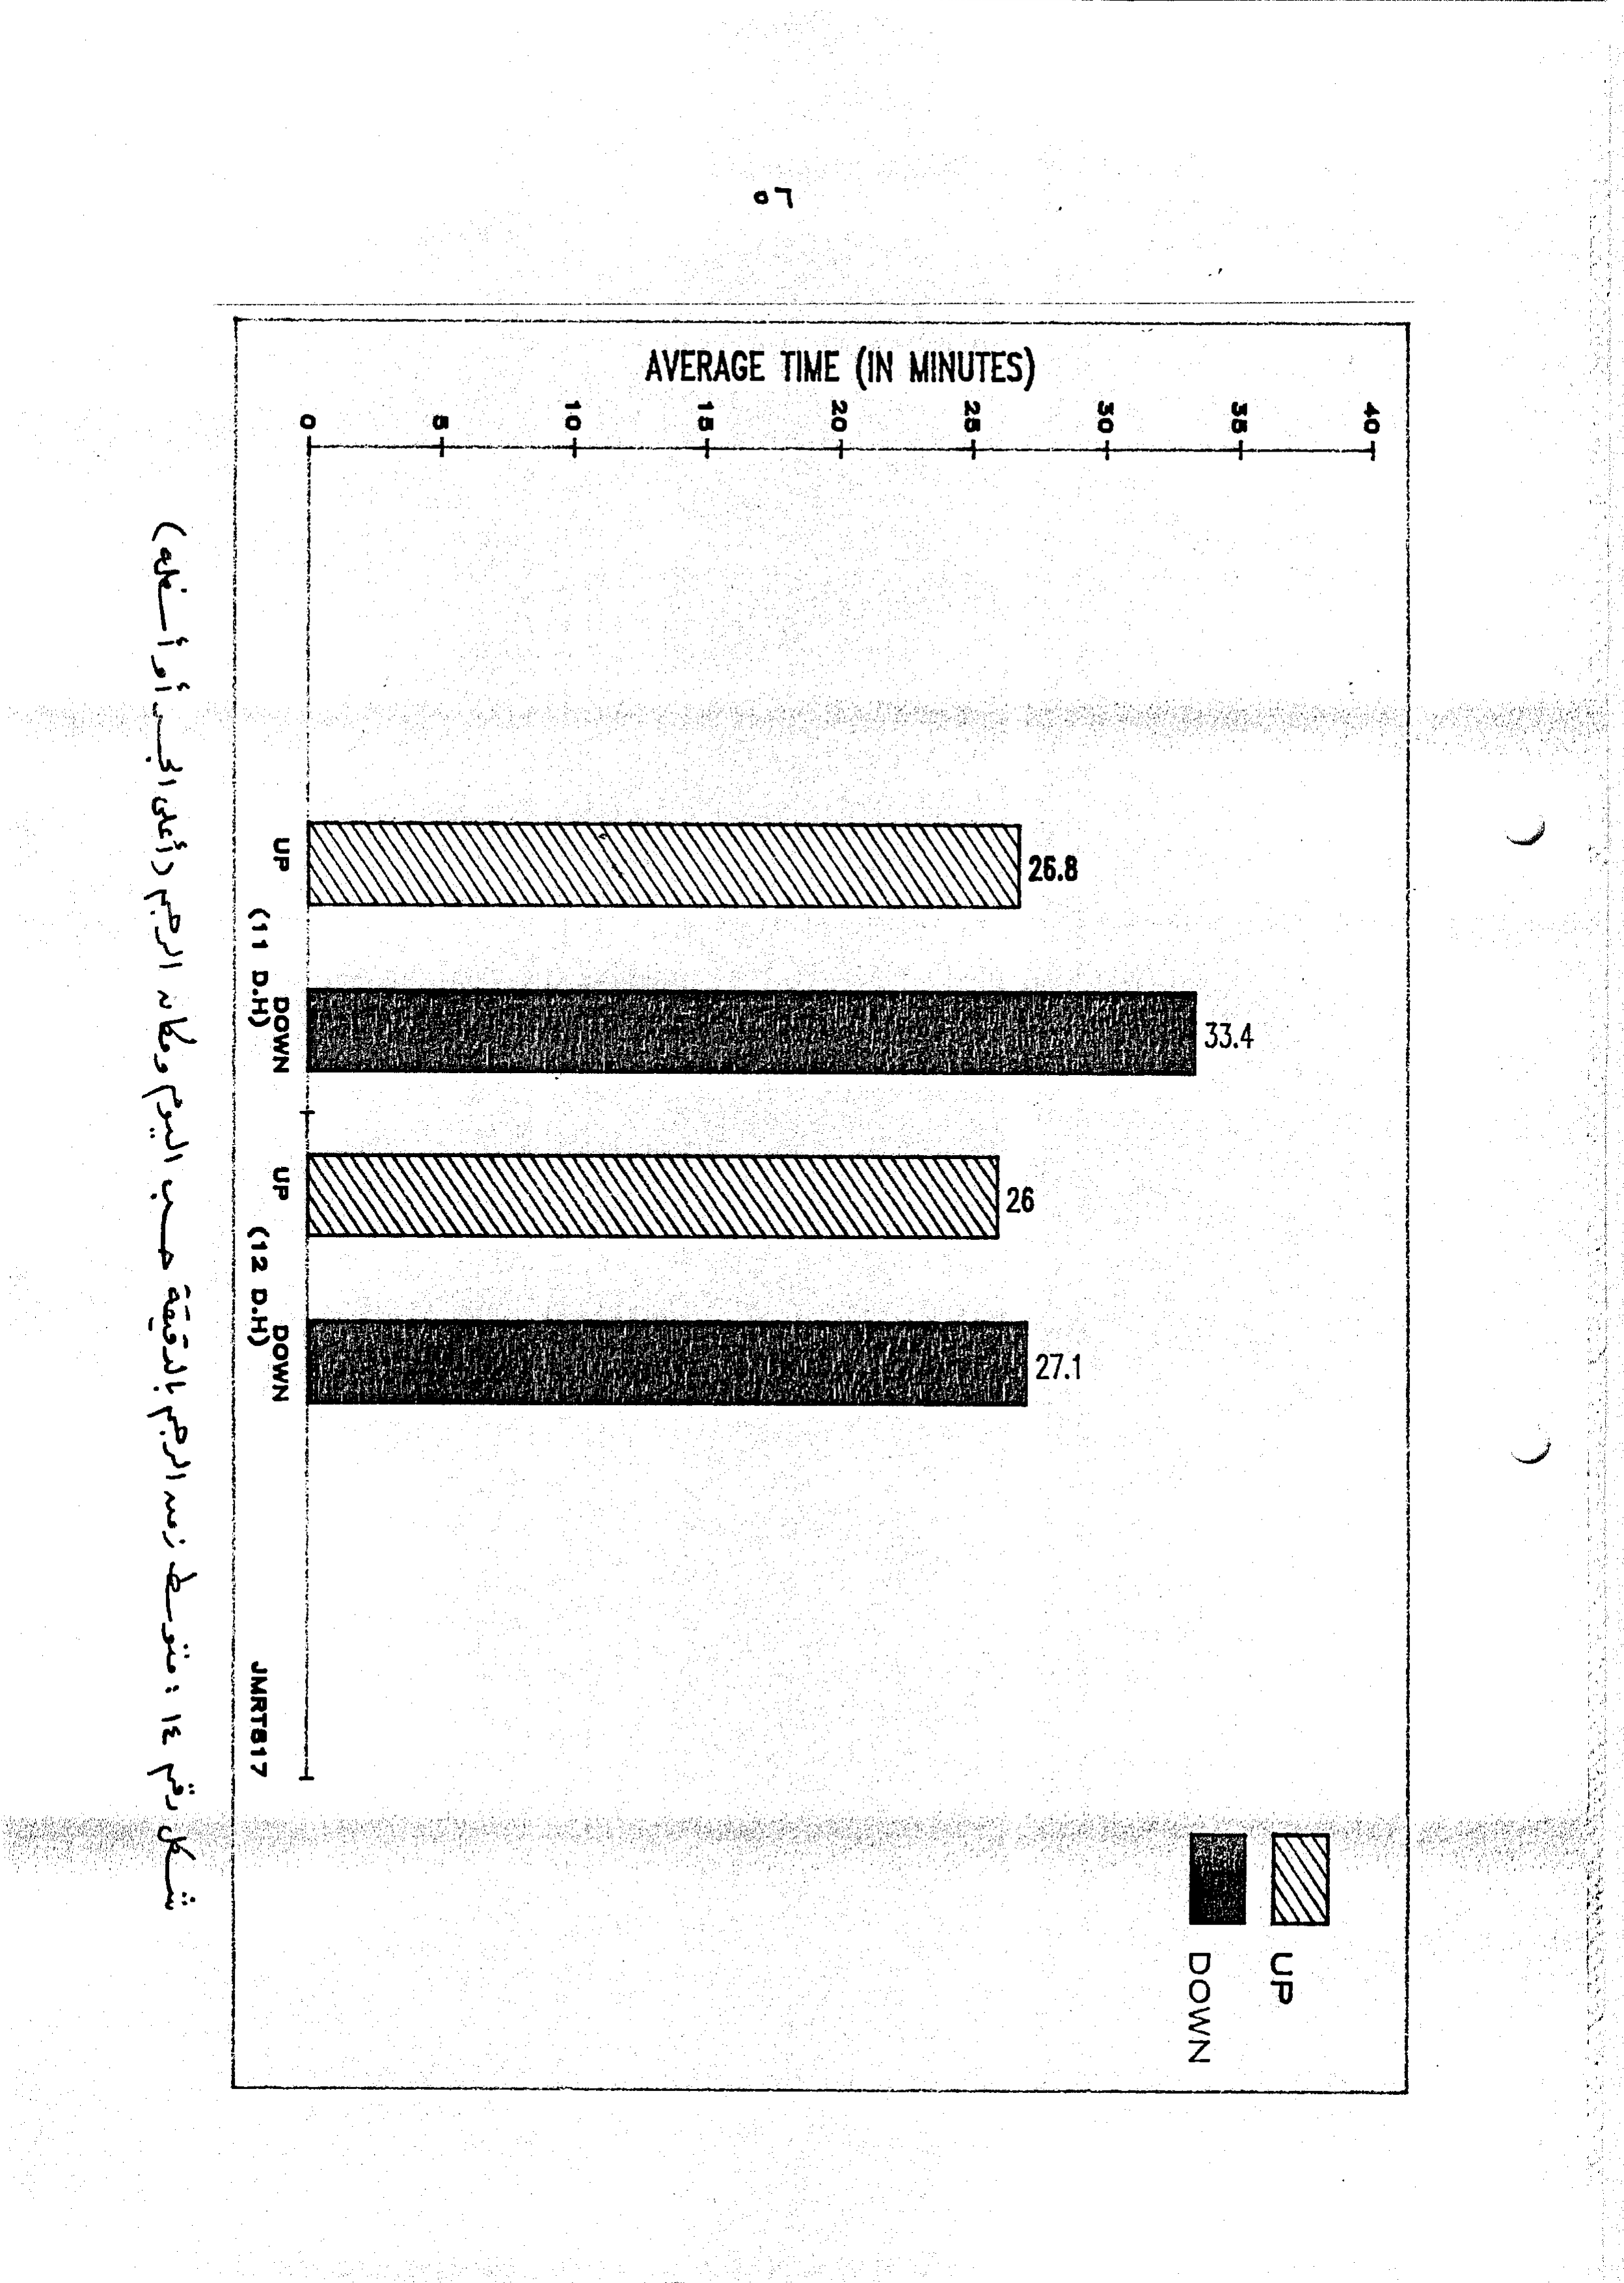 ٥٦
AVERAGE TIME (IN MINUTES)
40
35
30
25
20
15
10
5
0
26.8
33.4
26
27.1
UP
DOWN
UP
DOWN
(11 D.H)
(12 D.H)
JMRT817
UP
DOWN
شكل رقم ١٤ : متوسط زمن الرجم بالدقيقة حسب اليوم ومكان الرجم (أعلى الجسر أو أسفله)